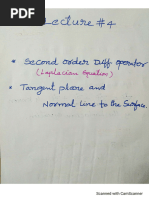 Lecture #4
* Second order Diff operator
(Laplacian Equation)
* Tangent plane and
Normal Line to the Surface.
Scanned with CamScanner